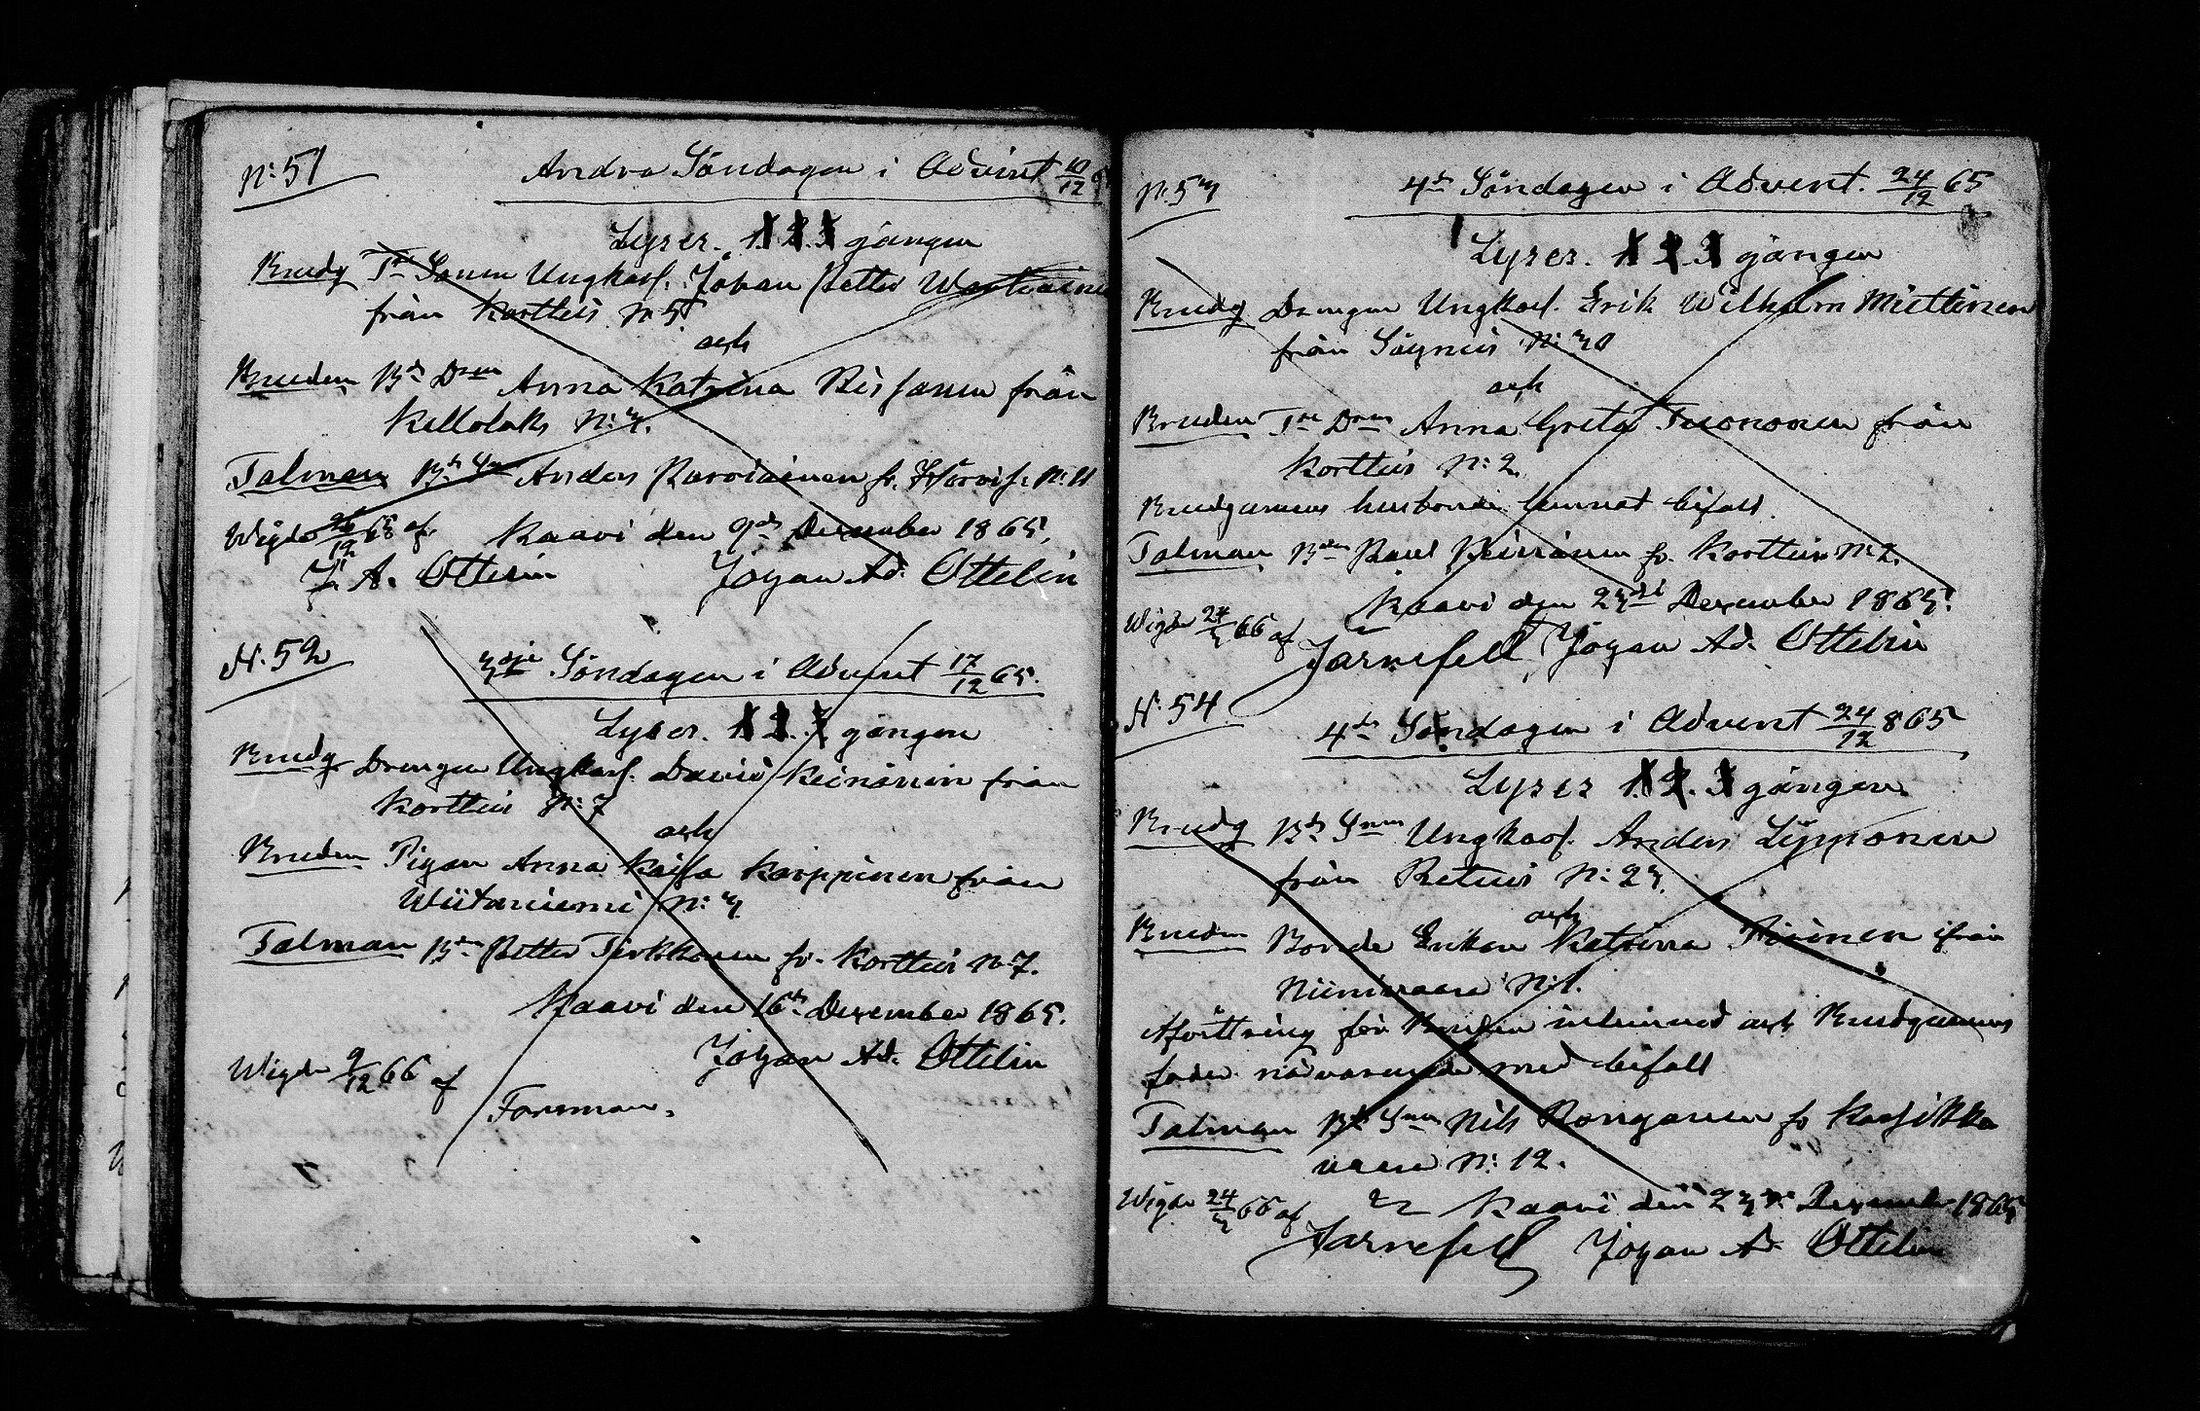 N:51
Andra Söndagen i Advent 10/12 65
Lyses. 1. 2. 3 gången
Brudg Tn Sonen Ungkarl. Johan Petter
från Kortteis N:5
och
Bruden Bds Dren Anna Katrina Reissanen från
Kellolaks N:3.
Talman Bd Sn Anders Parviainen fr. N:11
Wigde 26/12 65 af. Kaavi den 9de December 1865.
J. A. Ottelin Johan Ad. Ottelin
N:52
3dje Söndagen i Advent 17/12 65.
Lyses. 1. 2. 3 gången
Brudg Drengen Ungkarl. David Keinänen från
Kortteis N:7
och
Bruden Pigan Anna Kaisa Karppinen från
Wiitaniemi N:3
Talman Bdn Petter Tirkkonen fr. Kortteis N:7.
Kaavi den 16de December 1865.
Johan Ad. Ottelin
Wigde 9/12 66 af
Forsman.
N:53
4de Söndagen i Advent. 24/12 65
Lyses. 1. 2. 3 gången
Brudg Drengen Ungkarl. Erik Wilhelm Miettinen
från Säyneis N:30
och
Bruden Tre Dren Anna Greta Tuononen från
Kortteis N:2
Brudgumens husbonde lemnat bifall.
Talman Bden Paul Keinänen fr. Kortteis N:2.
Kaavi den 23de December 1865.
Wigde 24/3 66 af
Järnefelt Johan Ad. Ottelin
N:54
4de Söndagen i Advent 24/12 865
Lyses 1. 2. 3 gången
Brudg Bds Snen Ungkarl. Anders Lipponen
från Retuis N:23.
och
Bruden Bonde Enkan Katrina ifrån
Niinivaara N:1.
Afvittring för Bruden inlemnad och Brudgumens
fader närvarande med bifall
Talman Bds Snen Nils Ronganen fr Kaasikka
vaara N:12.
Wigde 24/3 66 af Kaavi den 23de December 1865
Järnefelt Johan Ad. Ottelin